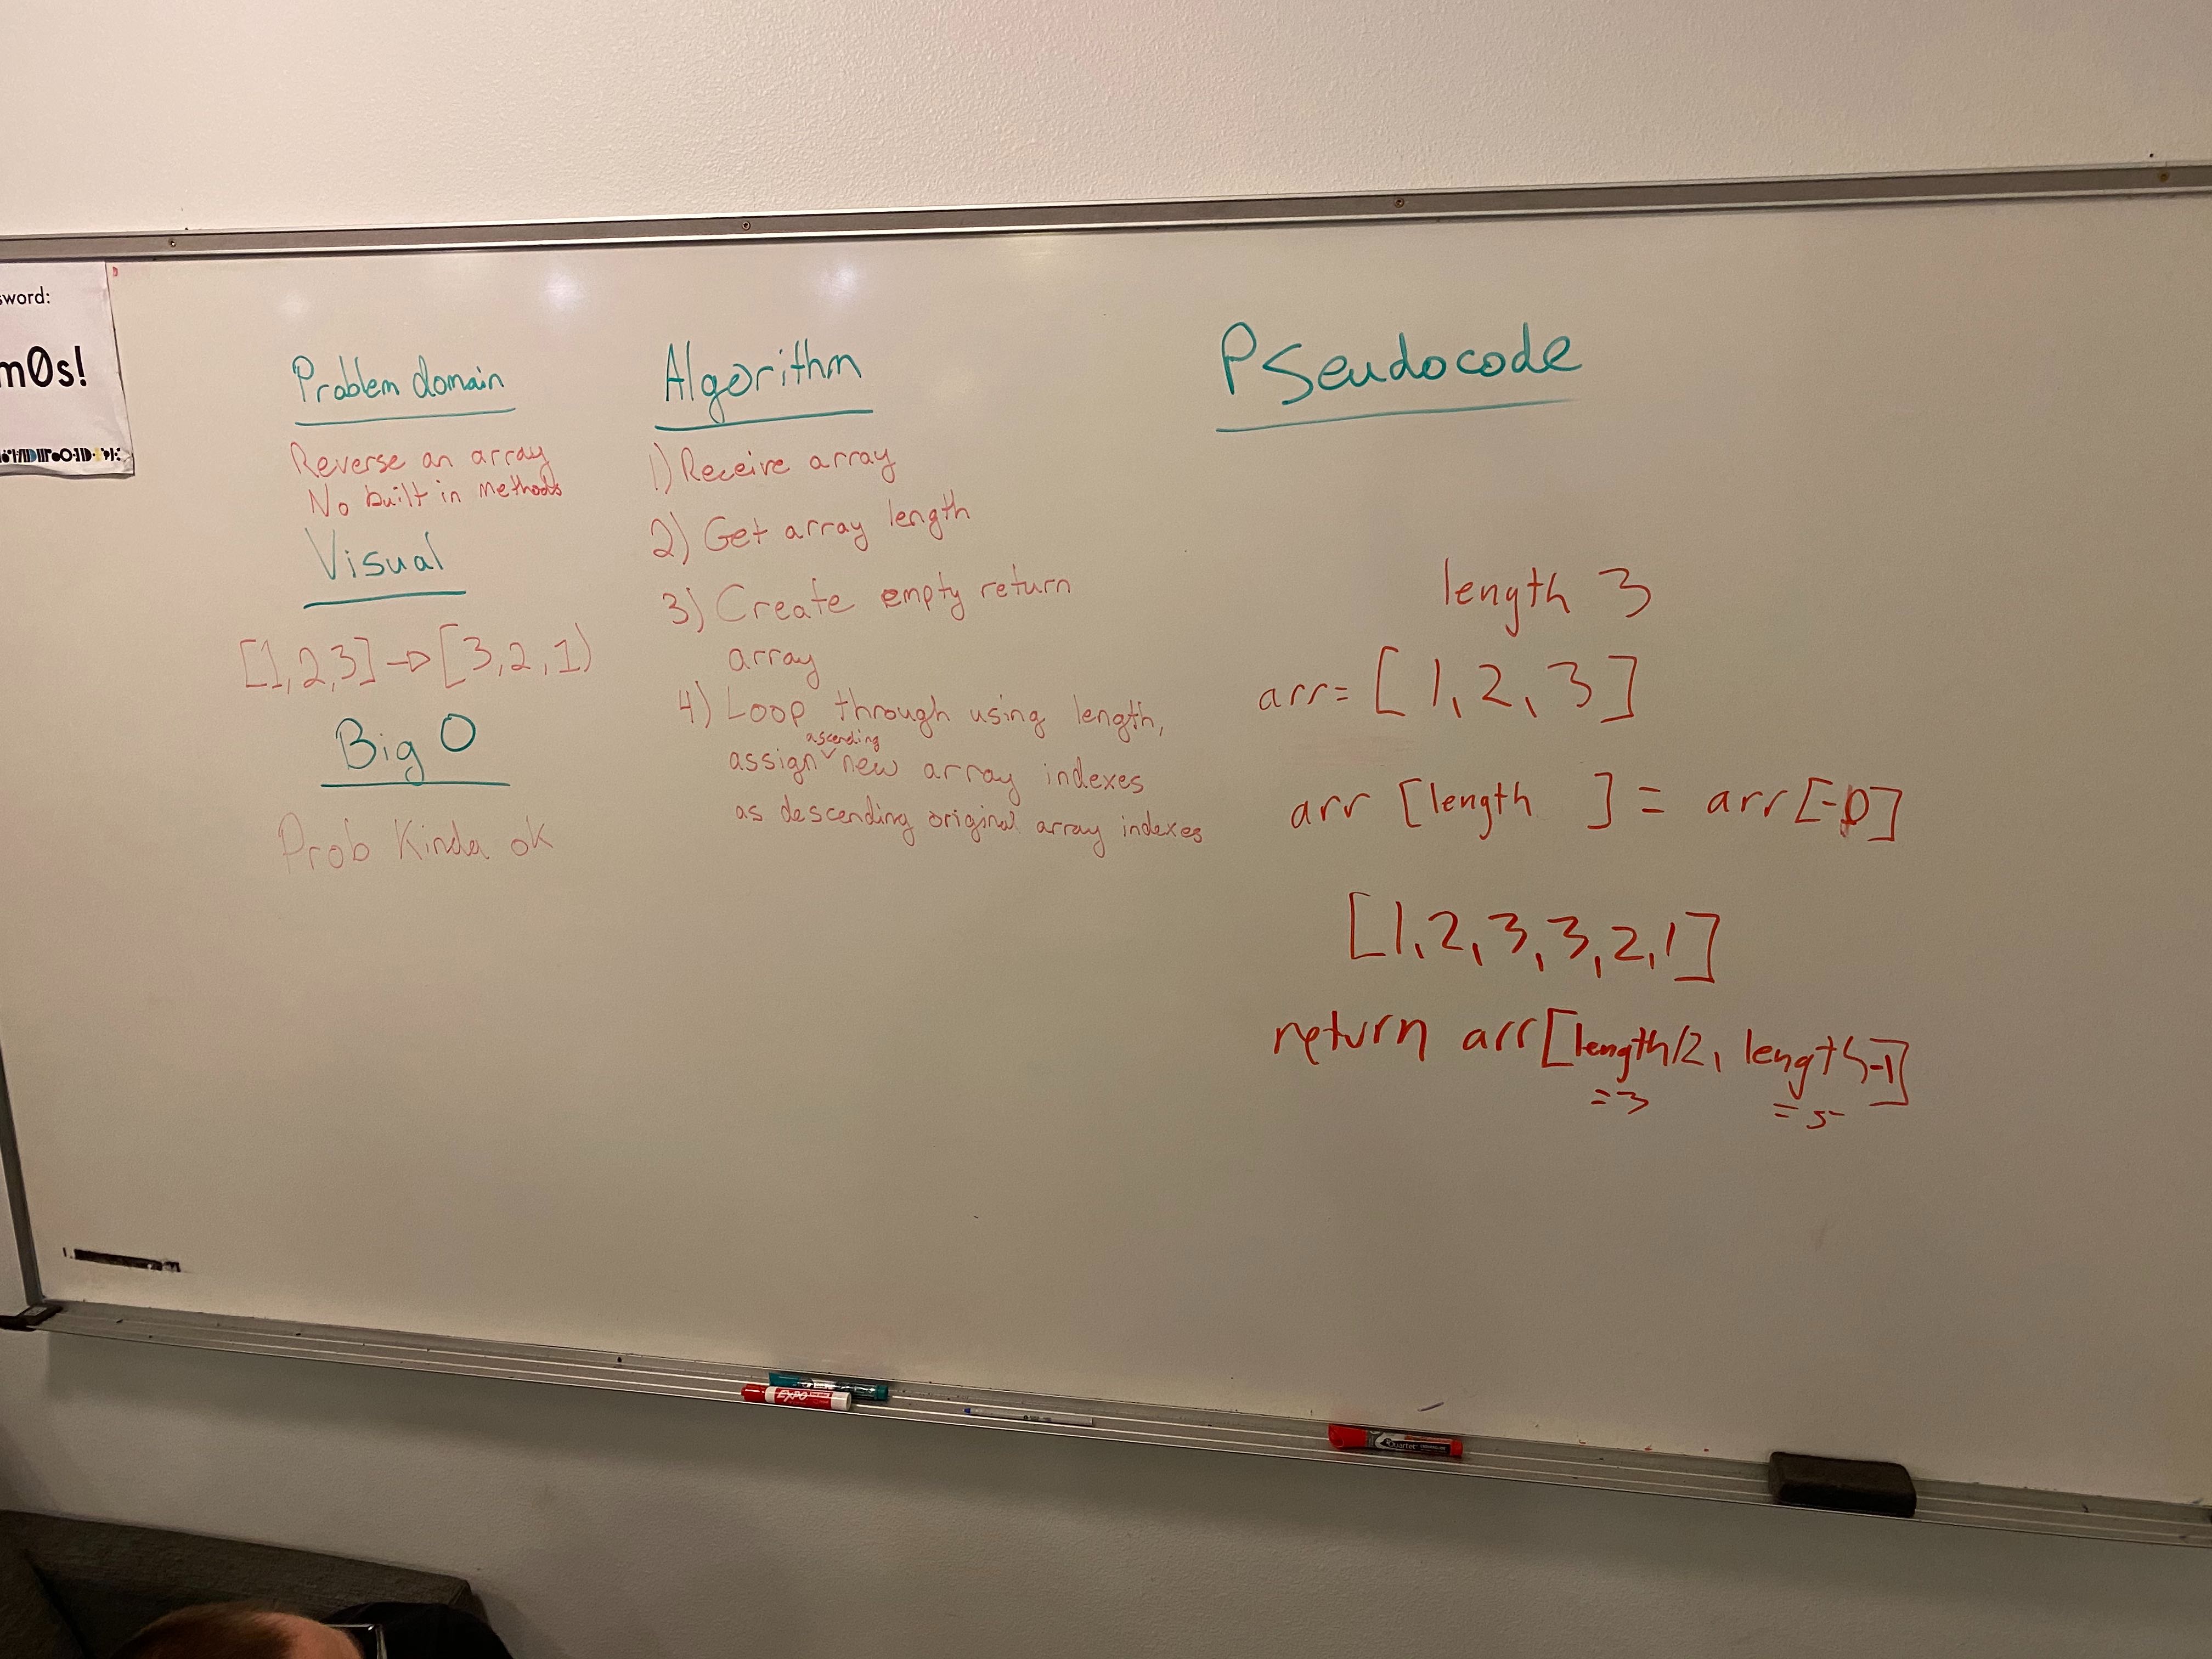 sword:
m0s!
Problem domain
Reverse an array
No built in methods
Visual
[1,2,3] → [3,2,1)
Big O
Prob Kinda ok
Algorithm
1) Receive array
2) Get array length
3) Create empty return
array
4) Loop through using length,
ascending
assign new array indexes
as descending original array indexes
Pseudocode
length 3
arr= [1,2,3]
arr [length ] = arr[-0]
[1,2,3,3,2,1]
return arr[length/2, length-1]
=3 =5
EXPO
Quartet